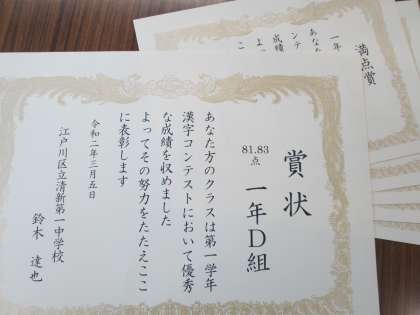 賞状
81.83点
一年D組
あなた方のクラスは第一学年
漢字コンテストにおいて優秀
な成績を収めました
よってその努力をたたえここ
に表彰します
令和二年三月五日
江戸川区立清新第一中学校
鈴木 達也
満点賞
一年
あなた
ンテス
成績
よっ
こ